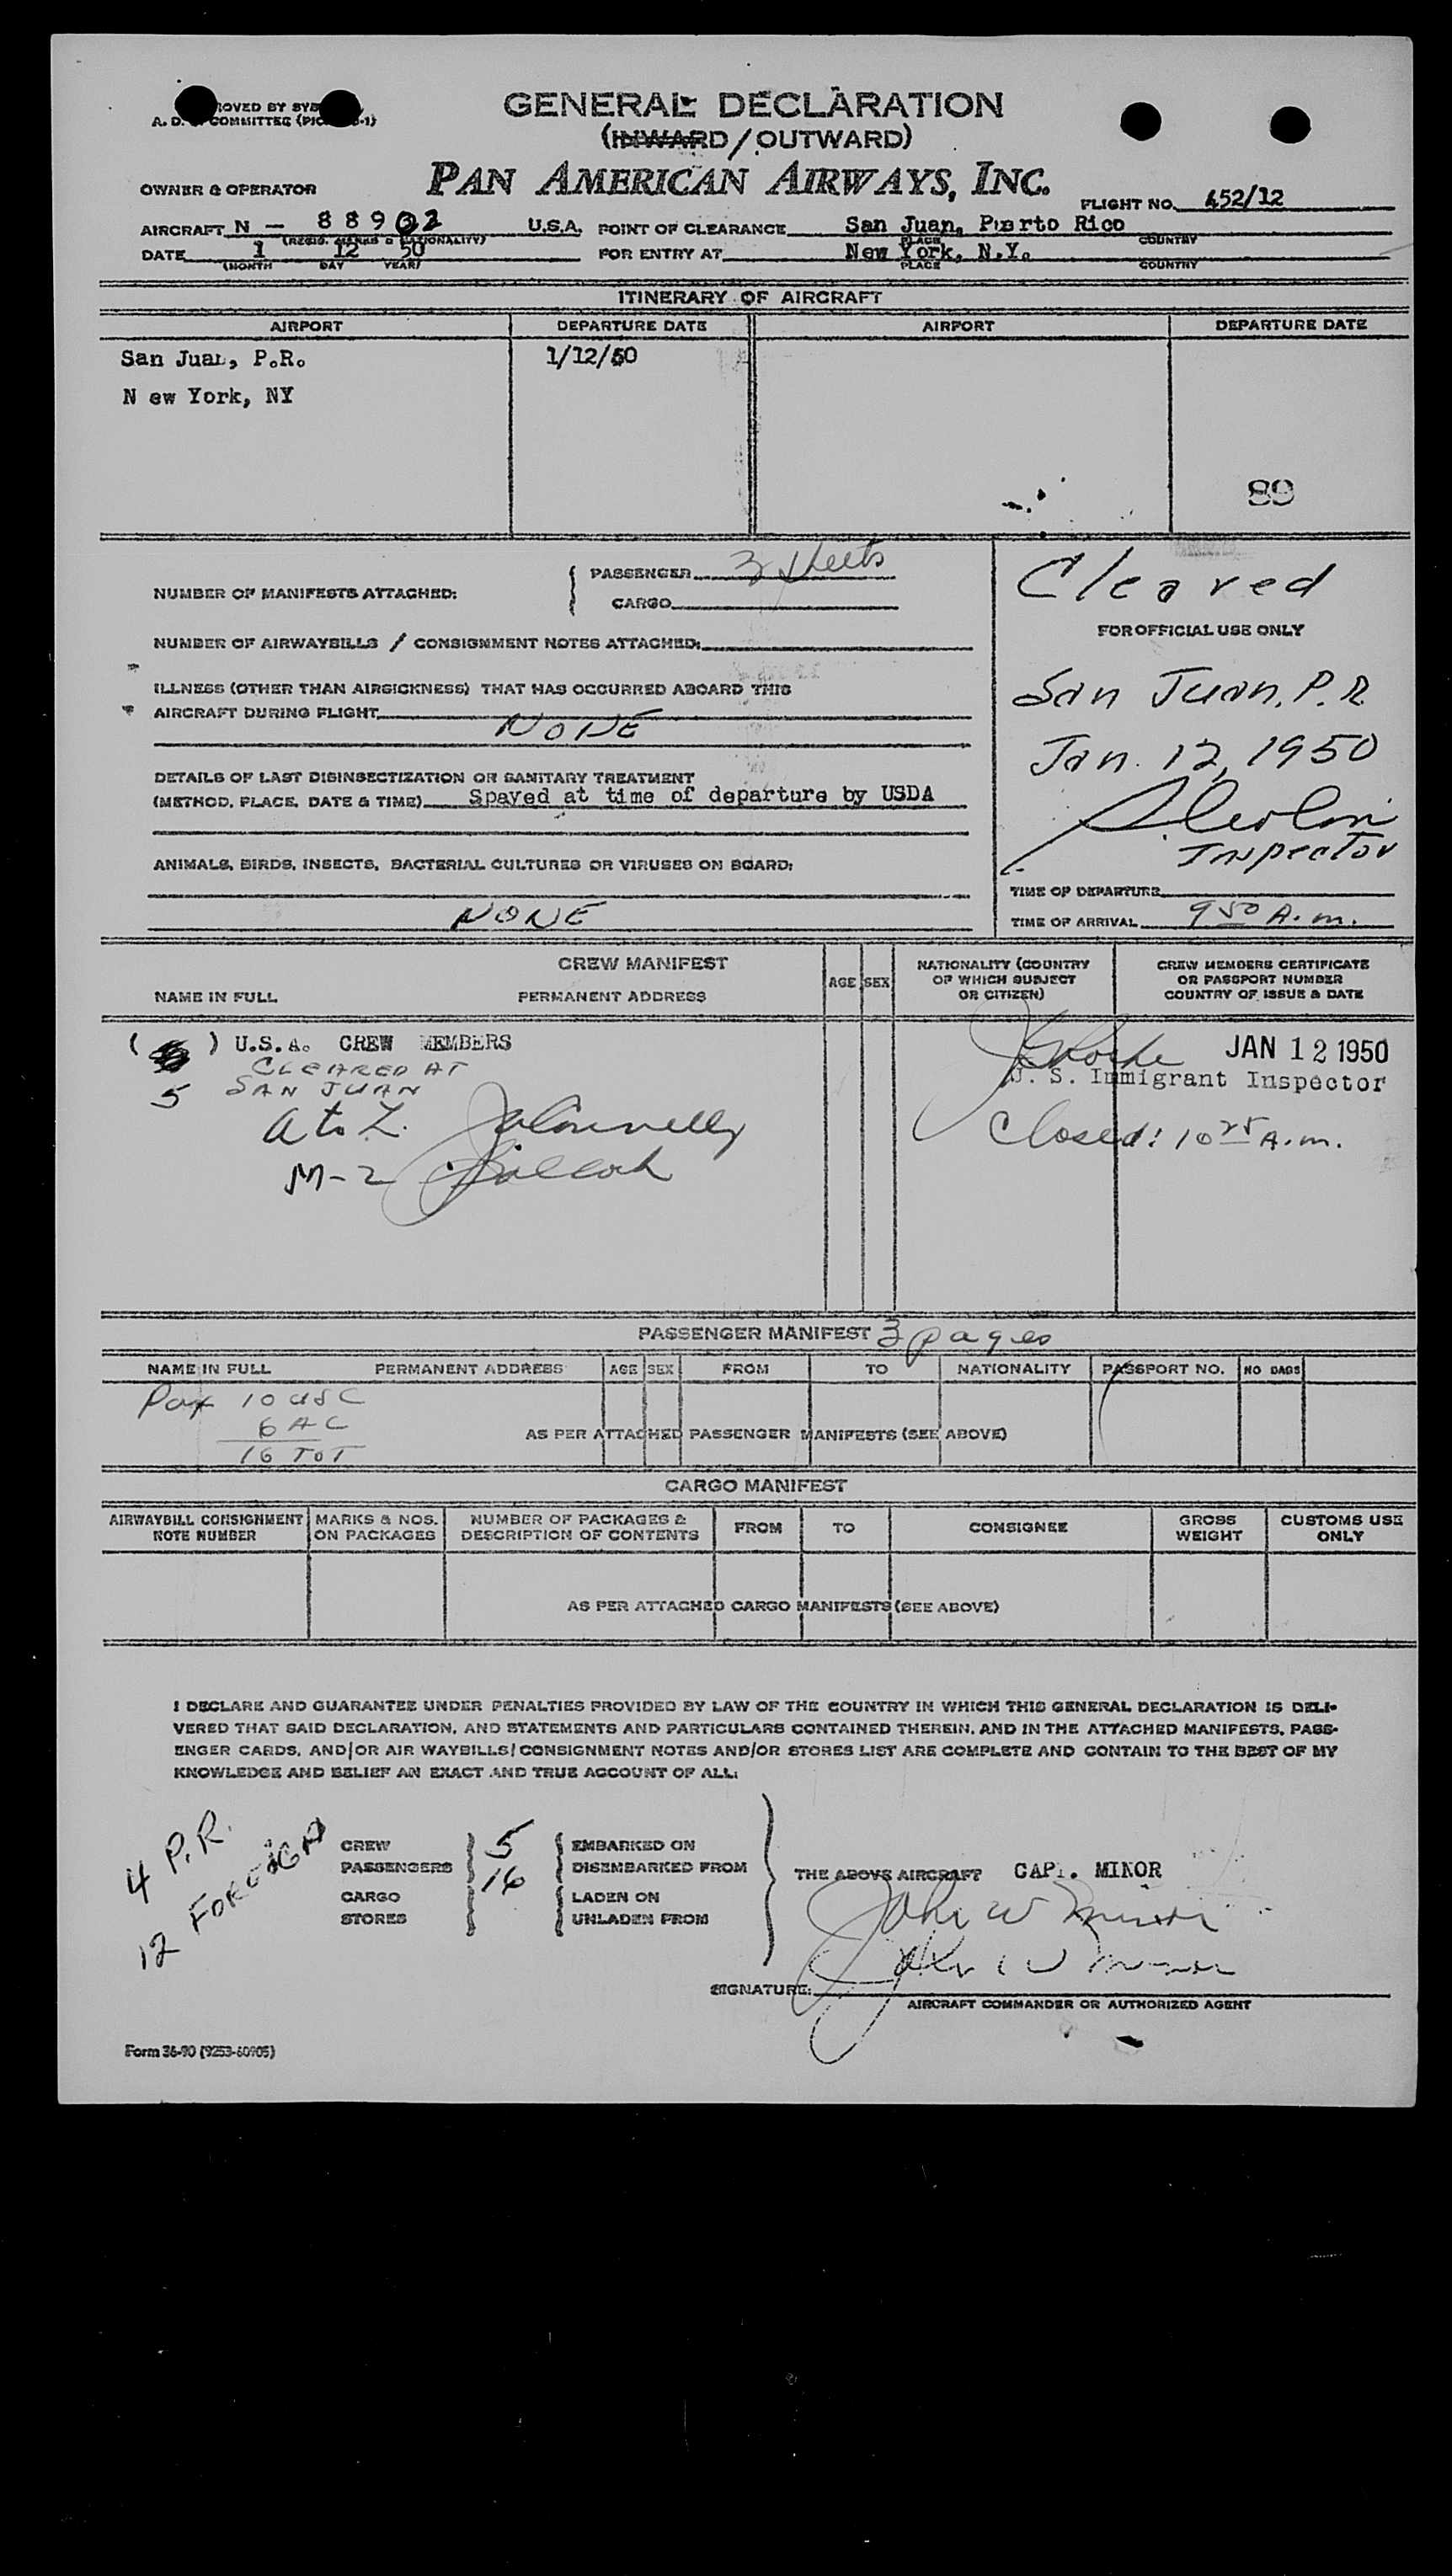 GENERAL DECLARATION
(INWARD / OUTWARD)
A. D. COMMITTEE
OWNER & OPERATOR PAN AMERICAN AIRWAYS, INC.
FLIGHT NO. 452/12
AIRCRAFT N - 88902 U.S.A. POINT OF CLEARANCE San Juan, Puerto Rico
(REGIS. MARKS & NATIONALITY) PLACE COUNTRY
DATE 1 12 50 FOR ENTRY AT New York, N.Y.
(MONTH DAY YEAR) PLACE COUNTRY
ITINERARY OF AIRCRAFT
AIRPORT DEPARTURE DATE AIRPORT DEPARTURE DATE
San Juan, P.R. 1/12/50
N ew York, NY
89
NUMBER OF MANIFESTS ATTACHED: PASSENGER 3 sheets
CARGO
Cleared
FOR OFFICIAL USE ONLY
NUMBER OF AIRWAYBILLS / CONSIGNMENT NOTES ATTACHED:
ILLNESS (OTHER THAN AIRSICKNESS) THAT HAS OCCURRED ABOARD THIS
AIRCRAFT DURING FLIGHT
NONE
San Juan, P.R
Jan. 12, 1950
DETAILS OF LAST DISINSECTIZATION OR SANITARY TREATMENT
(METHOD, PLACE, DATE & TIME) Spayed at time of departure by USDA
Inspector
ANIMALS, BIRDS, INSECTS, BACTERIAL CULTURES OR VIRUSES ON BOARD:
NONE
TIME OF DEPARTURE
TIME OF ARRIVAL 9 50 A.m.
CREW MANIFEST
NAME IN FULL PERMANENT ADDRESS AGE SEX
NATIONALITY (COUNTRY
OF WHICH SUBJECT
OR CITIZEN)
CREW MEMBERS CERTIFICATE
OR PASSPORT NUMBER
COUNTRY OF ISSUE & DATE
( ) U.S.A. CREW MEMBERS
CLEARED AT
5 SAN JUAN
JAN 12 1950
U. S. Immigrant Inspector
A to Z.
Closed: 10 25 A.m.
M-2
PASSENGER MANIFEST 3 pages
NAME IN FULL PERMANENT ADDRESS AGE SEX FROM TO NATIONALITY PASSPORT NO. NO BAGS
Pax 10 USC
6 AC
16 TOT
AS PER ATTACHED PASSENGER MANIFESTS (SEE ABOVE)
CARGO MANIFEST
AIRWAYBILL CONSIGNMENT
NOTE NUMBER
MARKS & NOS.
ON PACKAGES
NUMBER OF PACKAGES &
DESCRIPTION OF CONTENTS
FROM TO CONSIGNEE
GROSS
WEIGHT
CUSTOMS USE
ONLY
AS PER ATTACHED CARGO MANIFESTS (SEE ABOVE)
I DECLARE AND GUARANTEE UNDER PENALTIES PROVIDED BY LAW OF THE COUNTRY IN WHICH THIS GENERAL DECLARATION IS DELI-
VERED THAT SAID DECLARATION, AND STATEMENTS AND PARTICULARS CONTAINED THEREIN, AND IN THE ATTACHED MANIFESTS, PASS-
ENGER CARDS, AND/OR AIR WAYBILLS/ CONSIGNMENT NOTES AND/OR STORES LIST ARE COMPLETE AND CONTAIN TO THE BEST OF MY
KNOWLEDGE AND BELIEF AN EXACT AND TRUE ACCOUNT OF ALL:
4 P.R.
12 FOREIGN
CREW 5 EMBARKED ON
PASSENGERS 16 DISEMBARKED FROM
CARGO LADEN ON
STORES UNLADEN FROM
THE ABOVE AIRCRAFT CAPT. MINOR
John W Minor
John W Minor
SIGNATURE:
AIRCRAFT COMMANDER OR AUTHORIZED AGENT
Form 36-90 (9253-60905)